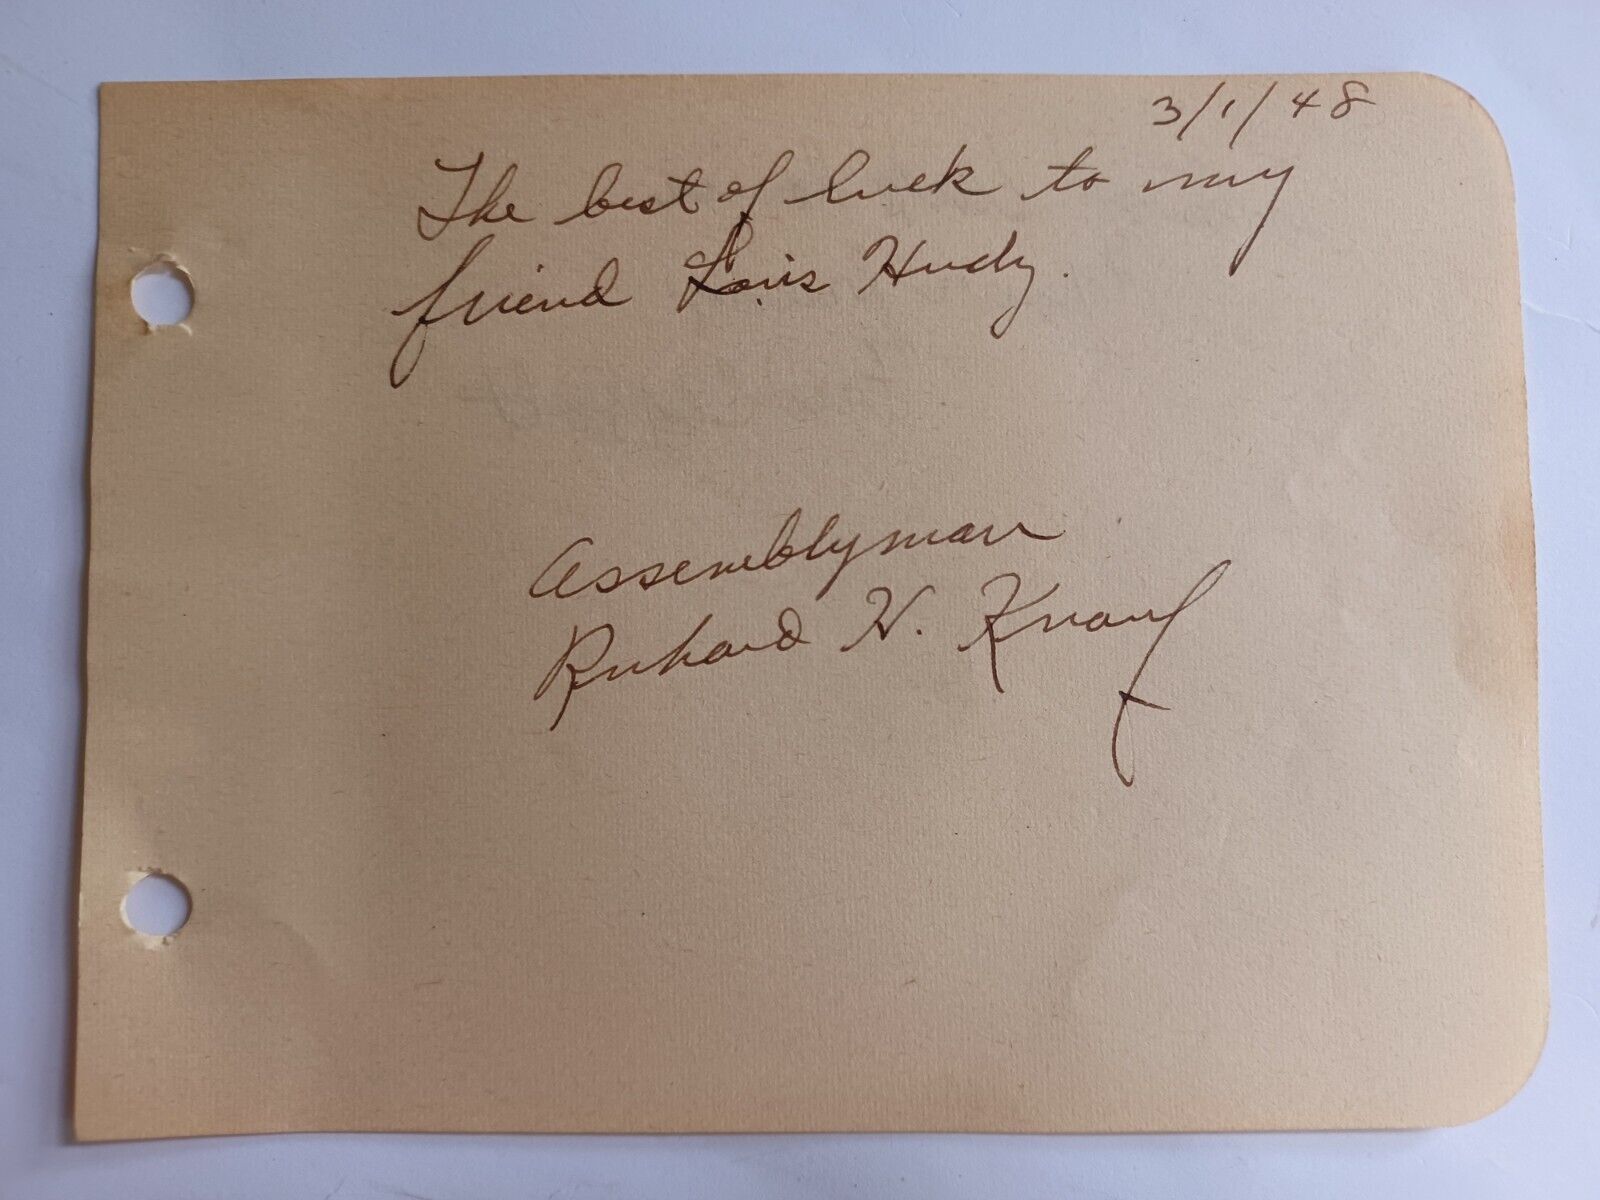 3/1/48
The best of luck to my
friend Lois Hudy.
Assemblyman
Richard H. Knauf